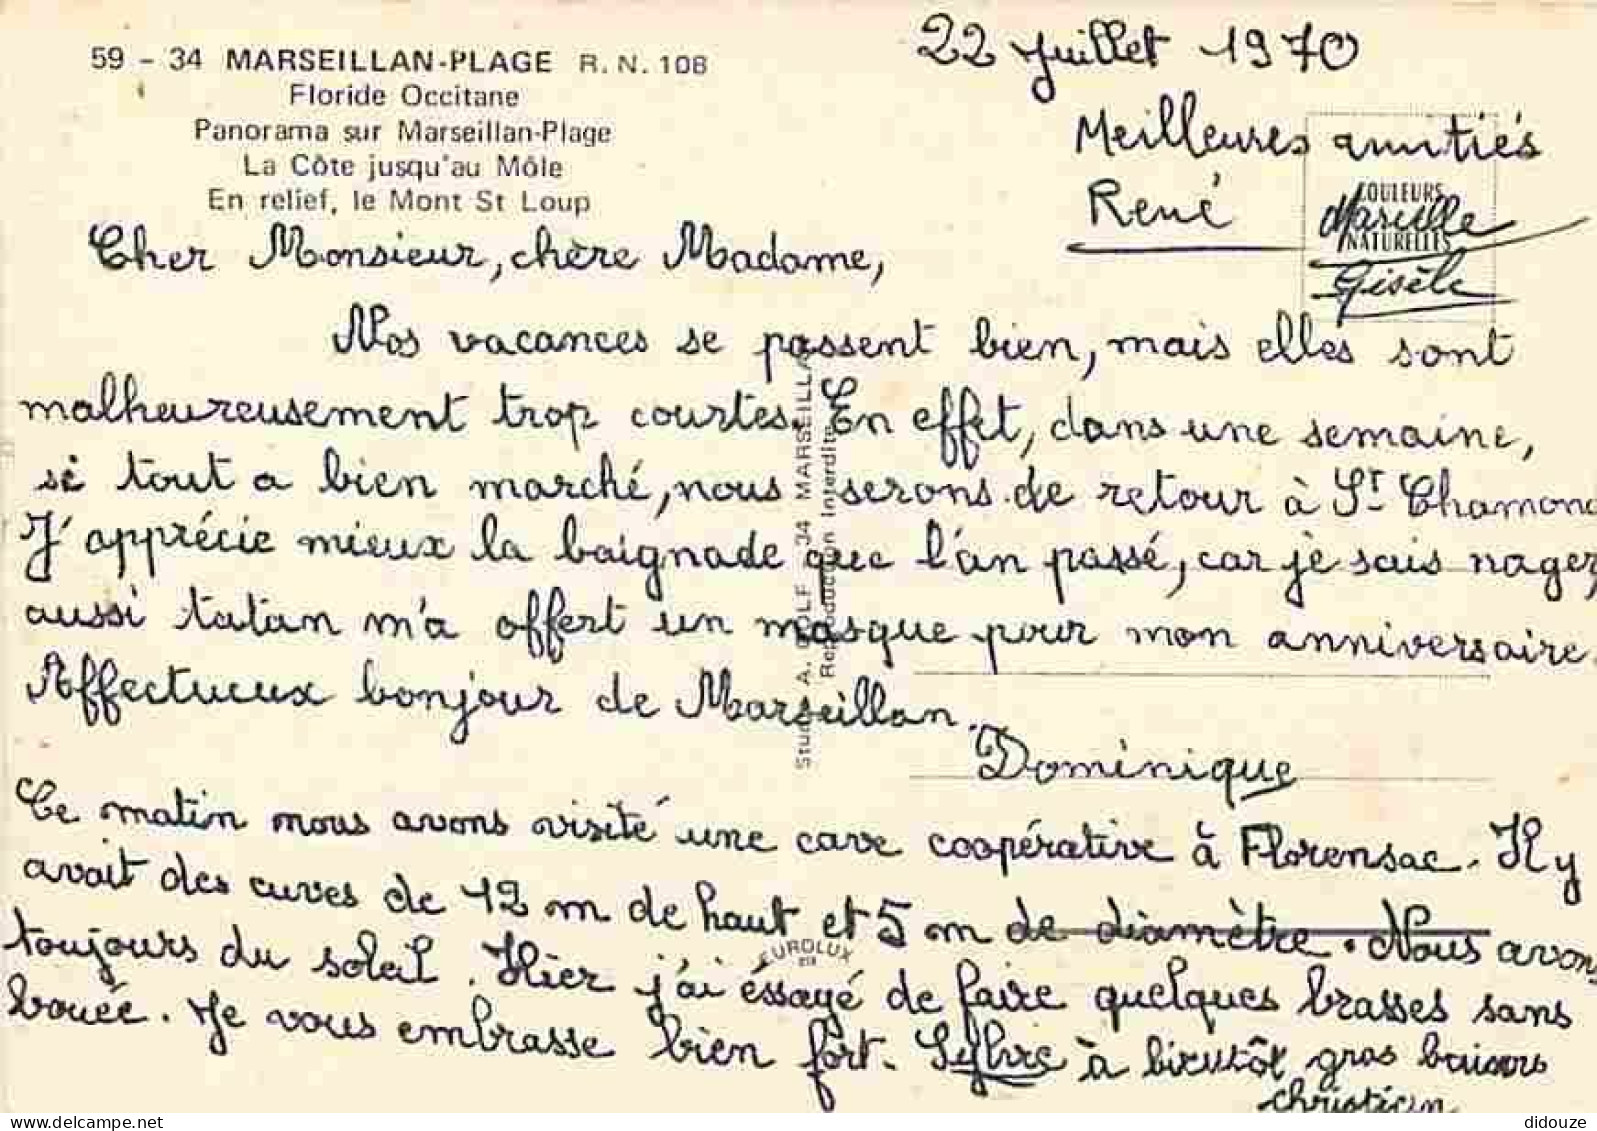 59 - 34 MARSEILLAN-PLAGE R. N. 108
Floride Occitane
Panorama sur Marseillan-Plage
La Côte jusqu'au Môle
En relief, le Mont St Loup
22 juillet 1970
Meilleures amitiés
René
COULEURS
NATURELLES
Marcelle
Gisèle
Cher Monsieur, chère Madame,
Nos vacances se passent bien, mais elles sont
malheureusement trop courtes. En effet, dans une semaine,
si tout a bien marché, nous serons de retour à St Chamond
J'apprécie mieux la baignade que l'an passé, car je sais nager,
aussi tatan m'a offert un masque pour mon anniversaire.
Affectueux bonjour de Marseillan.
Dominique
Ce matin nous avons visité une cave coopérative à Florensac. Il y
avait des cuves de 12 m de haut et 5 m de diamètre. Nous avons
toujours du soleil. Hier j'ai éssayé de faire quelques brasses sans
bouée. Je vous embrasse bien fort. Sylvie à bientôt gros baisers
christian
Studio A. GOLF 34 MARSEILLAN
Reproduction Interdite
EUROLUX
delcampe.net
didouze